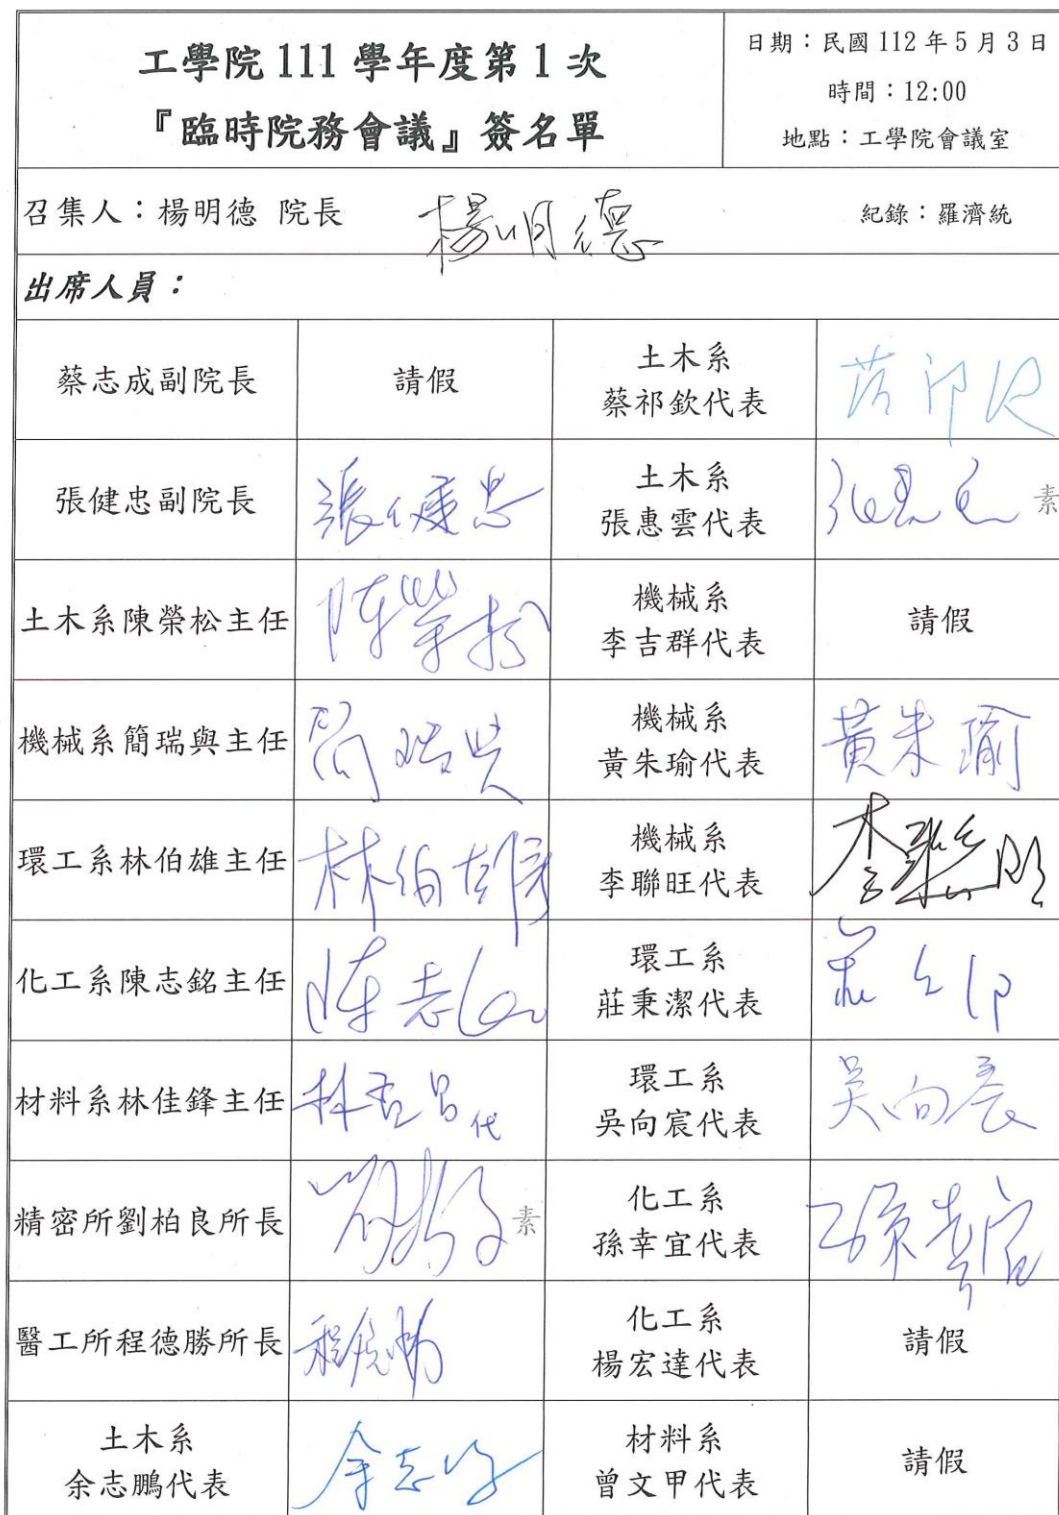 工學院 111 學年度第 1 次
『臨時院務會議』簽名單
日期：民國 112 年 5 月 3 日
時間：12:00
地點：工學院會議室
召集人：楊明德 院長 楊明德 紀錄：羅濟統
出席人員：
蔡志成副院長 請假
土木系
蔡祁欽代表
張健忠副院長 張健忠
土木系
張惠雲代表
素
土木系陳榮松主任 陳榮松
機械系
李吉群代表
請假
機械系簡瑞與主任 簡瑞與
機械系
黃朱瑜代表
黃朱瑜
環工系林伯雄主任 林伯雄
機械系
李聯旺代表
李聯旺
化工系陳志銘主任 陳志銘
環工系
莊秉潔代表
材料系林佳鋒主任 代
環工系
吳向宸代表
吳向宸
精密所劉柏良所長 素
化工系
孫幸宜代表
孫幸宜
醫工所程德勝所長 程德勝
化工系
楊宏達代表
請假
土木系
余志鵬代表
余志鵬
材料系
曾文甲代表
請假